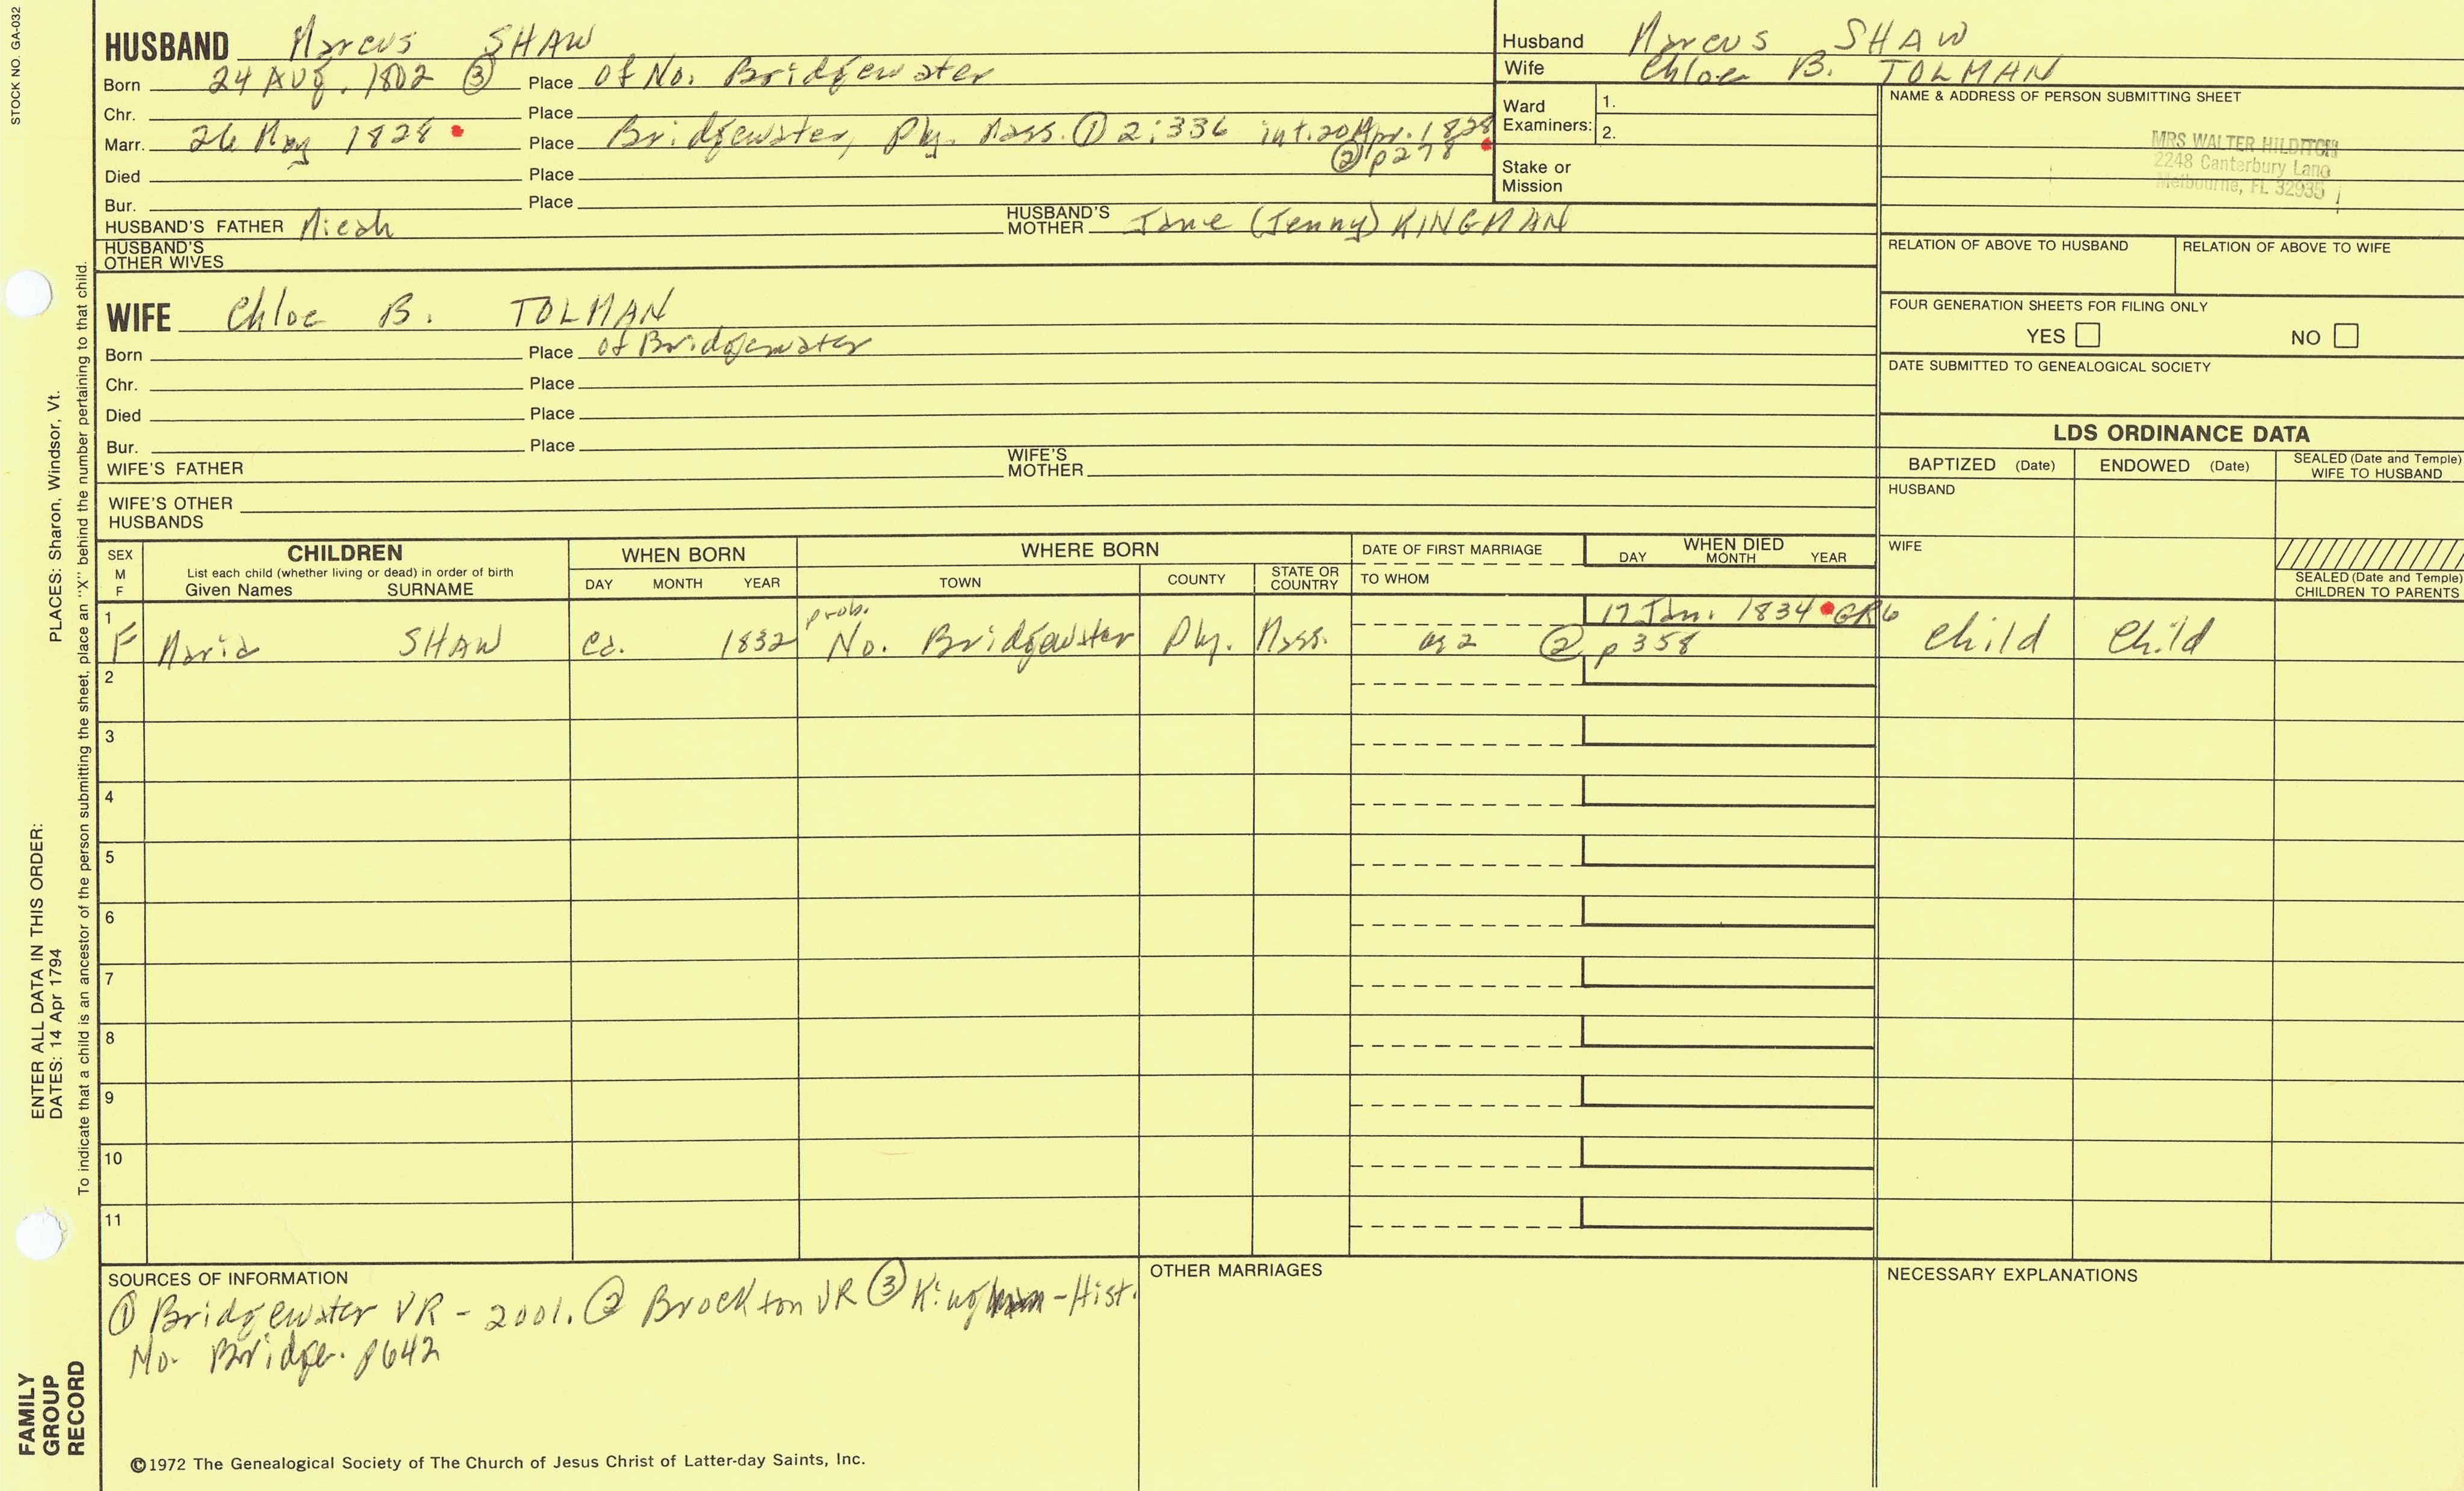 STOCK NO. GA-032
HUSBAND Marcus SHAW
Born 24 Aug. 1802 ③ Place of No. Bridgewater
Chr. Place
Marr. 26 May 1828 Place Bridgewater, Ply. Mass. ① 2:336 int. 20 Apr. 1828
② p278
Died Place
Bur. Place
HUSBAND'S FATHER Micah HUSBAND'S MOTHER Jane (Jenny) KINGMAN
HUSBAND'S OTHER WIVES
WIFE Chloe B. TOLMAN
Born Place of Bridgewater
Chr. Place
Died Place
Bur. Place
WIFE'S FATHER WIFE'S MOTHER
WIFE'S OTHER HUSBANDS
Husband Marcus SHAW
Wife Chloe B. TOLMAN
Ward Examiners: 1.
2.
Stake or Mission
NAME & ADDRESS OF PERSON SUBMITTING SHEET
MRS WALTER HILDITCH
2248 Canterbury Lane
Melbourne, FL 32935
RELATION OF ABOVE TO HUSBAND RELATION OF ABOVE TO WIFE
FOUR GENERATION SHEETS FOR FILING ONLY
YES NO
DATE SUBMITTED TO GENEALOGICAL SOCIETY
LDS ORDINANCE DATA
BAPTIZED (Date) ENDOWED (Date) SEALED (Date and Temple) WIFE TO HUSBAND
HUSBAND
WIFE
SEALED (Date and Temple) CHILDREN TO PARENTS
SEX M F
CHILDREN
List each child (whether living or dead) in order of birth
Given Names SURNAME
WHEN BORN
DAY MONTH YEAR
WHERE BORN
TOWN COUNTY STATE OR COUNTRY
DATE OF FIRST MARRIAGE
TO WHOM
WHEN DIED
DAY MONTH YEAR
1 prob. 17 Jan. 1834 GR6
F Maria SHAW ca. 1832 No. Bridgewater Ply. Mass. ag 2 ② p358 Child Child
2
3
4
5
6
7
8
9
10
11
SOURCES OF INFORMATION
① Bridgewater VR - 2001. ② Brockton VR ③ Kingman - Hist.
No. Bridge. p642
OTHER MARRIAGES
NECESSARY EXPLANATIONS
©1972 The Genealogical Society of The Church of Jesus Christ of Latter-day Saints, Inc.
ENTER ALL DATA IN THIS ORDER:
DATES: 14 Apr 1794
PLACES: Sharon, Windsor, Vt.
To indicate that a child is an ancestor of the person submitting the sheet, place an "X" behind the number pertaining to that child.
FAMILY
GROUP
RECORD